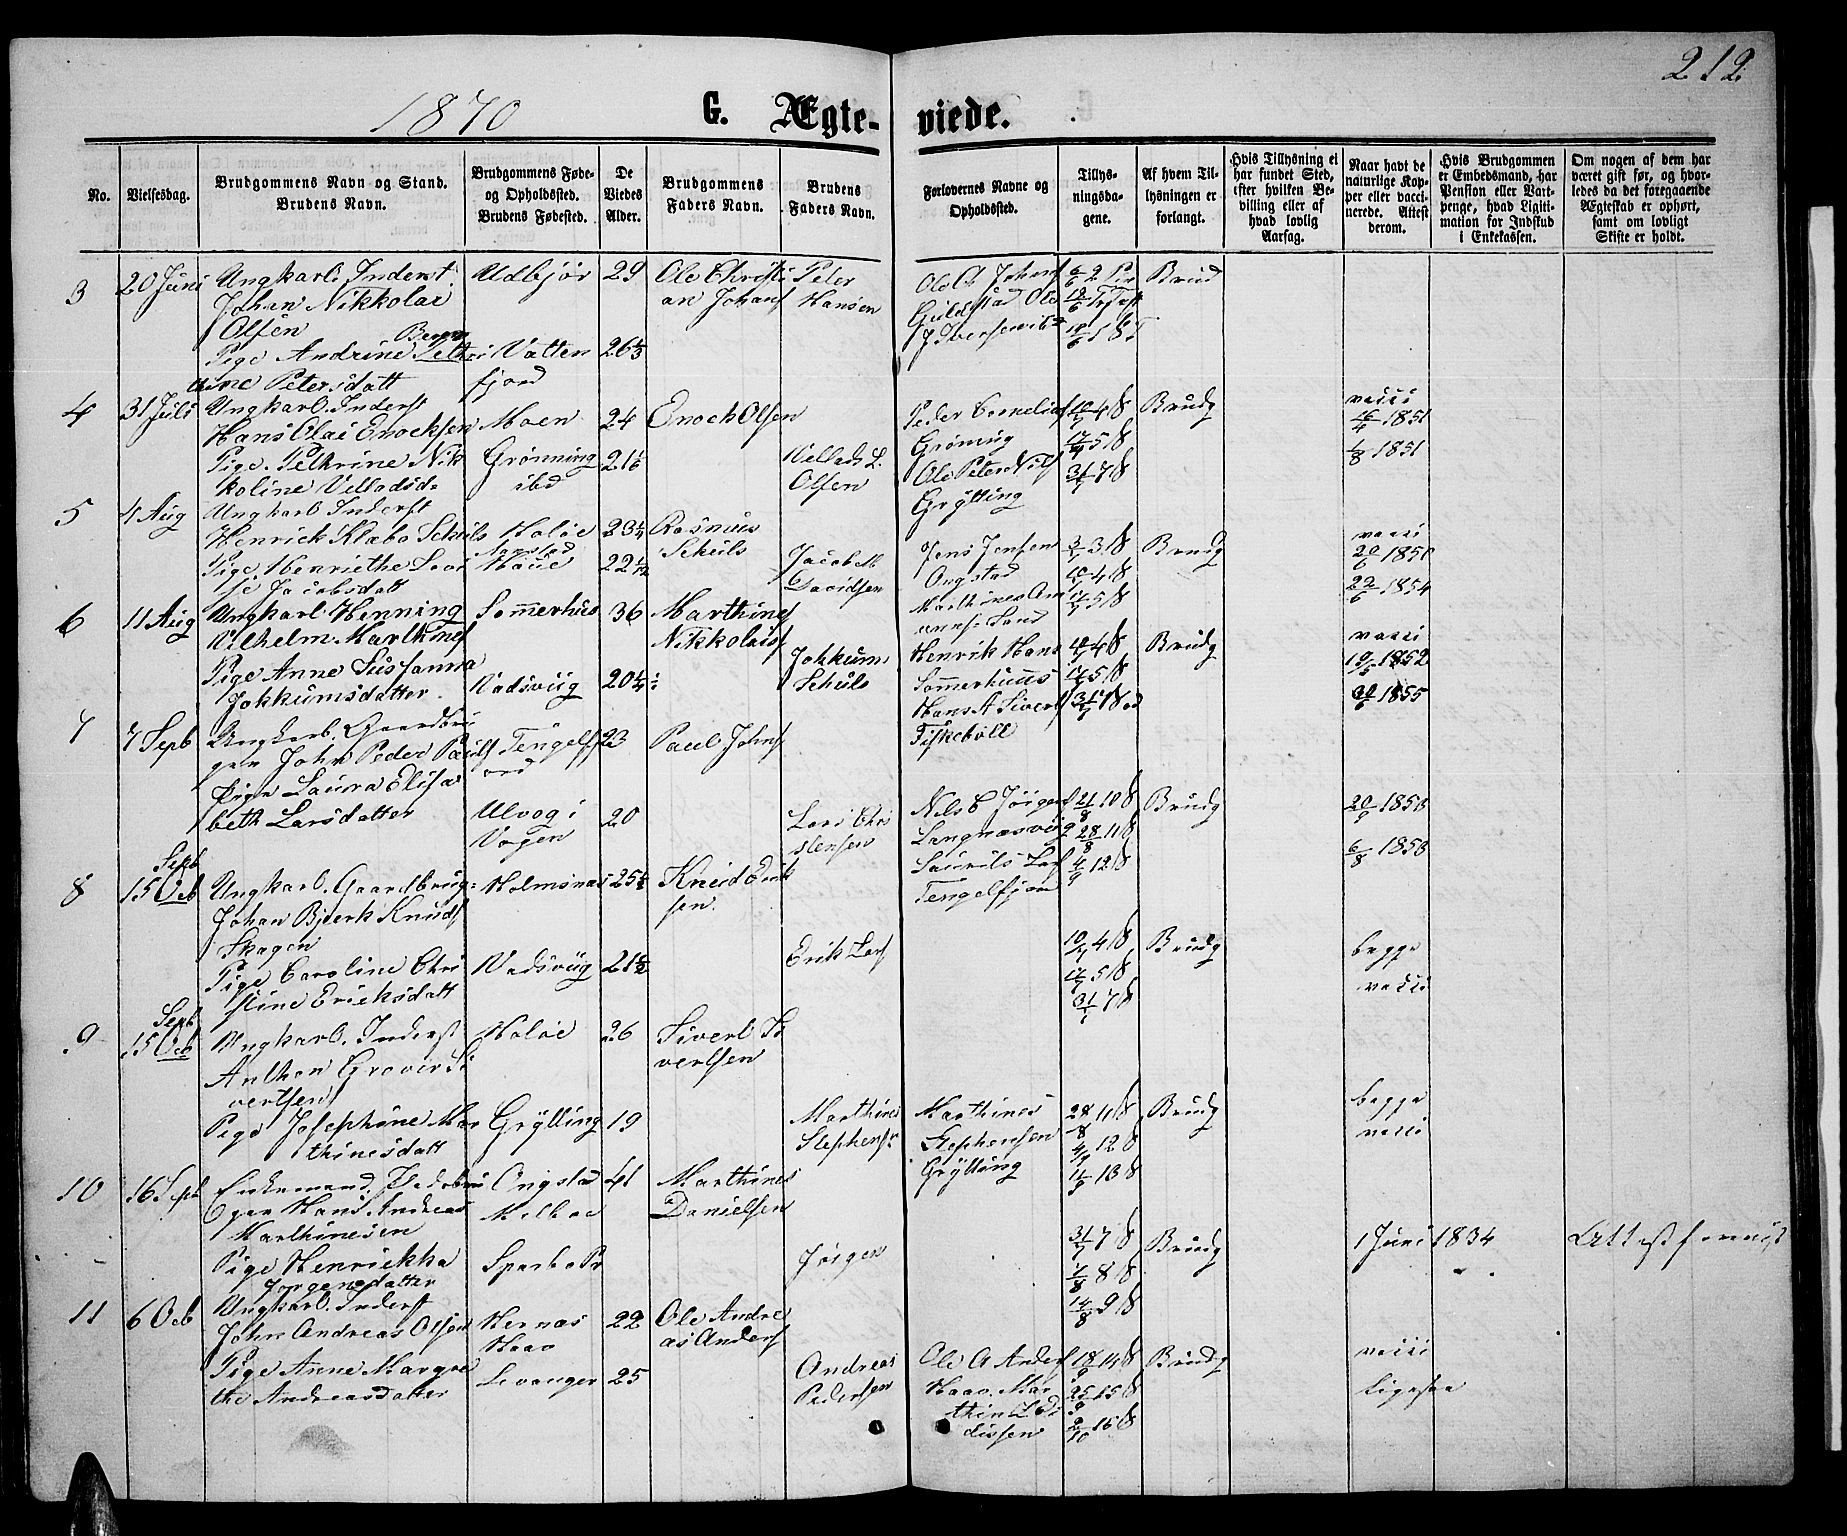 212
1870
G. Ægte-viede.
No.
Vielsesdag.
Brudgommens Navn og Stand.
Brudens Navn.
Brudgommens Føde-
og Opholdssted.
Brudens Fødested.
De
Viedes
Alder.
Brudgommens
Faders Navn.
Brudens
Faders Navn.
Forlovernes Navne og
Opholdssted.
Tillys-
ningsda-
gene.
Af hvem Til-
lysningen er
forlangt.
Hvis Tillysning ei
har fundet Sted,
efter hvilken Be-
villing eller af
hvad lovlig
Aarsag.
Naar havt de
naturlige Kop-
per eller vacci-
nerede. Attest
derom.
Hvis Brudgommen
er Embedsmand, har
Pension eller Vart-
penge, hvad Ligiti-
mation for Indskud
i Enkekassen.
Om nogen af dem har
været gift før, og hvor-
ledes da det foregaaende
Ægteskab er ophørt,
samt om lovligt
Skifte er holdt.
3
20 Juni
Ungkarl. Inderst.
Johan Nikkolai
Olsen
Pige Andrine
Petersdatt
Udbjør
Vatten
fjord
29
26
Ole Christi
an Johans
Peter
Hansen
Guldstad Ole
Brud
4
31 Juli
Ungkarl. Inderst
Hans Olai Enocksen
Pige. Petrine Nik
koline Velladsd
Moen
Grønning
ibd
24
21
Enoch Olsen
Vellads L.
Olsen
Peder Cornelius
Grønning
Ole Peter Nils
Grytting
10/7 4 S
17/7 5 S
31/7 7 S
Brudg
vacci
16/6 1851
1/8 1851
5
4 Aug
Ungkarl Inderst
Henrick Klabo Schuls
Pige. Henriethe Lovi
se Jacobsdatt
Haløe
23 1/4
22
Rasmus
Schuls
Jacob M
Davidsen
Jens Jensen
Ongstad
3/7 3 S
10/7 4 S
17/7 5 S
Brudg
vacci
20/6 1850
22/6 1854
6
11 Aug
Ungkarl Henning
Vilhelm Marthins
Pige Anne Sussanna
Jokkumsdatter
Sommerhus
Vadsviig
36
20 1/4
Marthines
Nikkolais
Jokkum
Schuls
Henrik Hans
Sommerhuus
Hans A Sivert
Fiskebøll
10/7 4 S
17/7 5 S
Brudg
vacci
19/5 1852
1855
7
7 Sepb
Ungkarl. Gaardbru
ger John Peder Pauls
Pige Laura Elisa
beth Larsdatter
Tengelfj
ord
Ulvog i
Vogen
23
20
Paul Johns
Lars Chri
stensen
Nils C Jørgens
Langnæsviig
Laurits Lars
Tengelfjor
21/8 10 S
28/8 11 S
4/9 12 S
Brudg
1850
6/8 1850
8
Sepb
15 Ocb
Ungkarl. Gaardbrug
Johan Bjerk Knuds
Skagen
Pige Caroline Chri
stine Ericksdatt
Holmsnæs
Vadsviig
25 1/2
21 1/2
Knud Erik
sen.
Erik Lars
10/7 4 S
17/7 5 S
31/7 7 S
Brudg
begge
vacci
9
Sepb
15 Ocb
Ungkarl. Inderst
Anthon Grover Si
vertsen
Pige Josephine Mar
thinesdatt
Haløe
Grytting
26
19
Sivert Si
vertsen
Marthines
Stephens
Marthines
Stephensen
Grytting
28/8 11 S
4/9 12 S
11/9 13 S
Brudg
begge
vacci
10
16 Sept
Enkemand. Pladsbru
ger Hans Andreas
Marthinesen
Pige Henrickka
Jørgensdatter
Ongstad
Melboe
Sparbo Pr
41
Marthines
Danielsen
Jørgen
31/7 7 S
7/8 8 S
14/8 9 S
Brudg
1 Juni 1834
Attest forevist
11
6 Ocb
Ungkarl. Inderst
John Andreas Olsen
Pige Anne Margre
the Andreasdatter
Hernæs
Haav
Levanger
22
25
Ole Andre
as Anders
Andreas
Pedersen
Ole A Anders
Haav. Mar
thin
18/9 14 S
25/9 15 S
2/10 16 S
Brudg
vacci
ligesaa